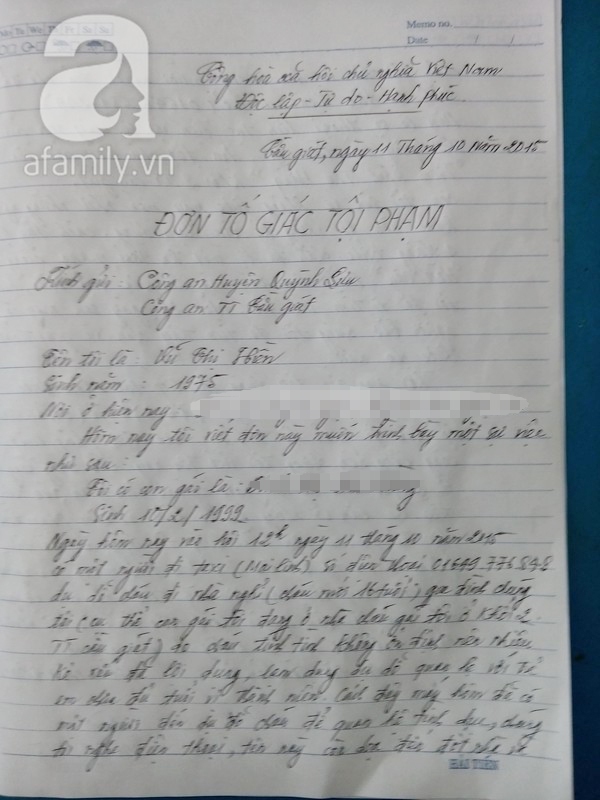 Mo Tu We Th Fr Sa Su
Memo no.
Date / /
afamily.vn
Cộng hòa xã hội chủ nghĩa Việt Nam
Độc lập - Tự do - Hạnh phúc
Cầu giát, ngày 11 Tháng 10 Năm 2015
ĐƠN TỐ GIÁC TỘI PHẠM
Kính gửi : Công an Huyện Quỳnh Lưu
Công an TT Cầu giát
Tên tôi là : Vũ Thị Hiền
Sinh năm : 1975
Nơi ở hiện nay :
Hôm nay tôi viết đơn này muốn trình bày một sự việc
như sau :
Tôi có con gái là :
Sinh 10/2/1999
Ngày hôm nay vào hồi 12h ngày 11 tháng 10 năm 2015
có một người đi taxi (Mai Linh) số điện thoại 01649.776.848
dụ dỗ cháu đi nhà nghỉ (cháu mới 16 tuổi) gia đình chúng
tôi (cụ thể con gái tôi đang ở nhà cháu gái tôi ở khối 2
TT cầu giát) do cháu tinh tình không ổn định nên nhiều
kẻ xấu đã lợi dụng, lạm dụng dụ dỗ quan hệ với trẻ
em chưa đủ tuổi vị thành niên. Cách đây mấy hôm đã có
một người đến dụ dỗ cháu để quan hệ tình dục, chúng
tôi nghe điện thoại, tên này còn dọa đến đốt nhà và
HẢI TIẾN